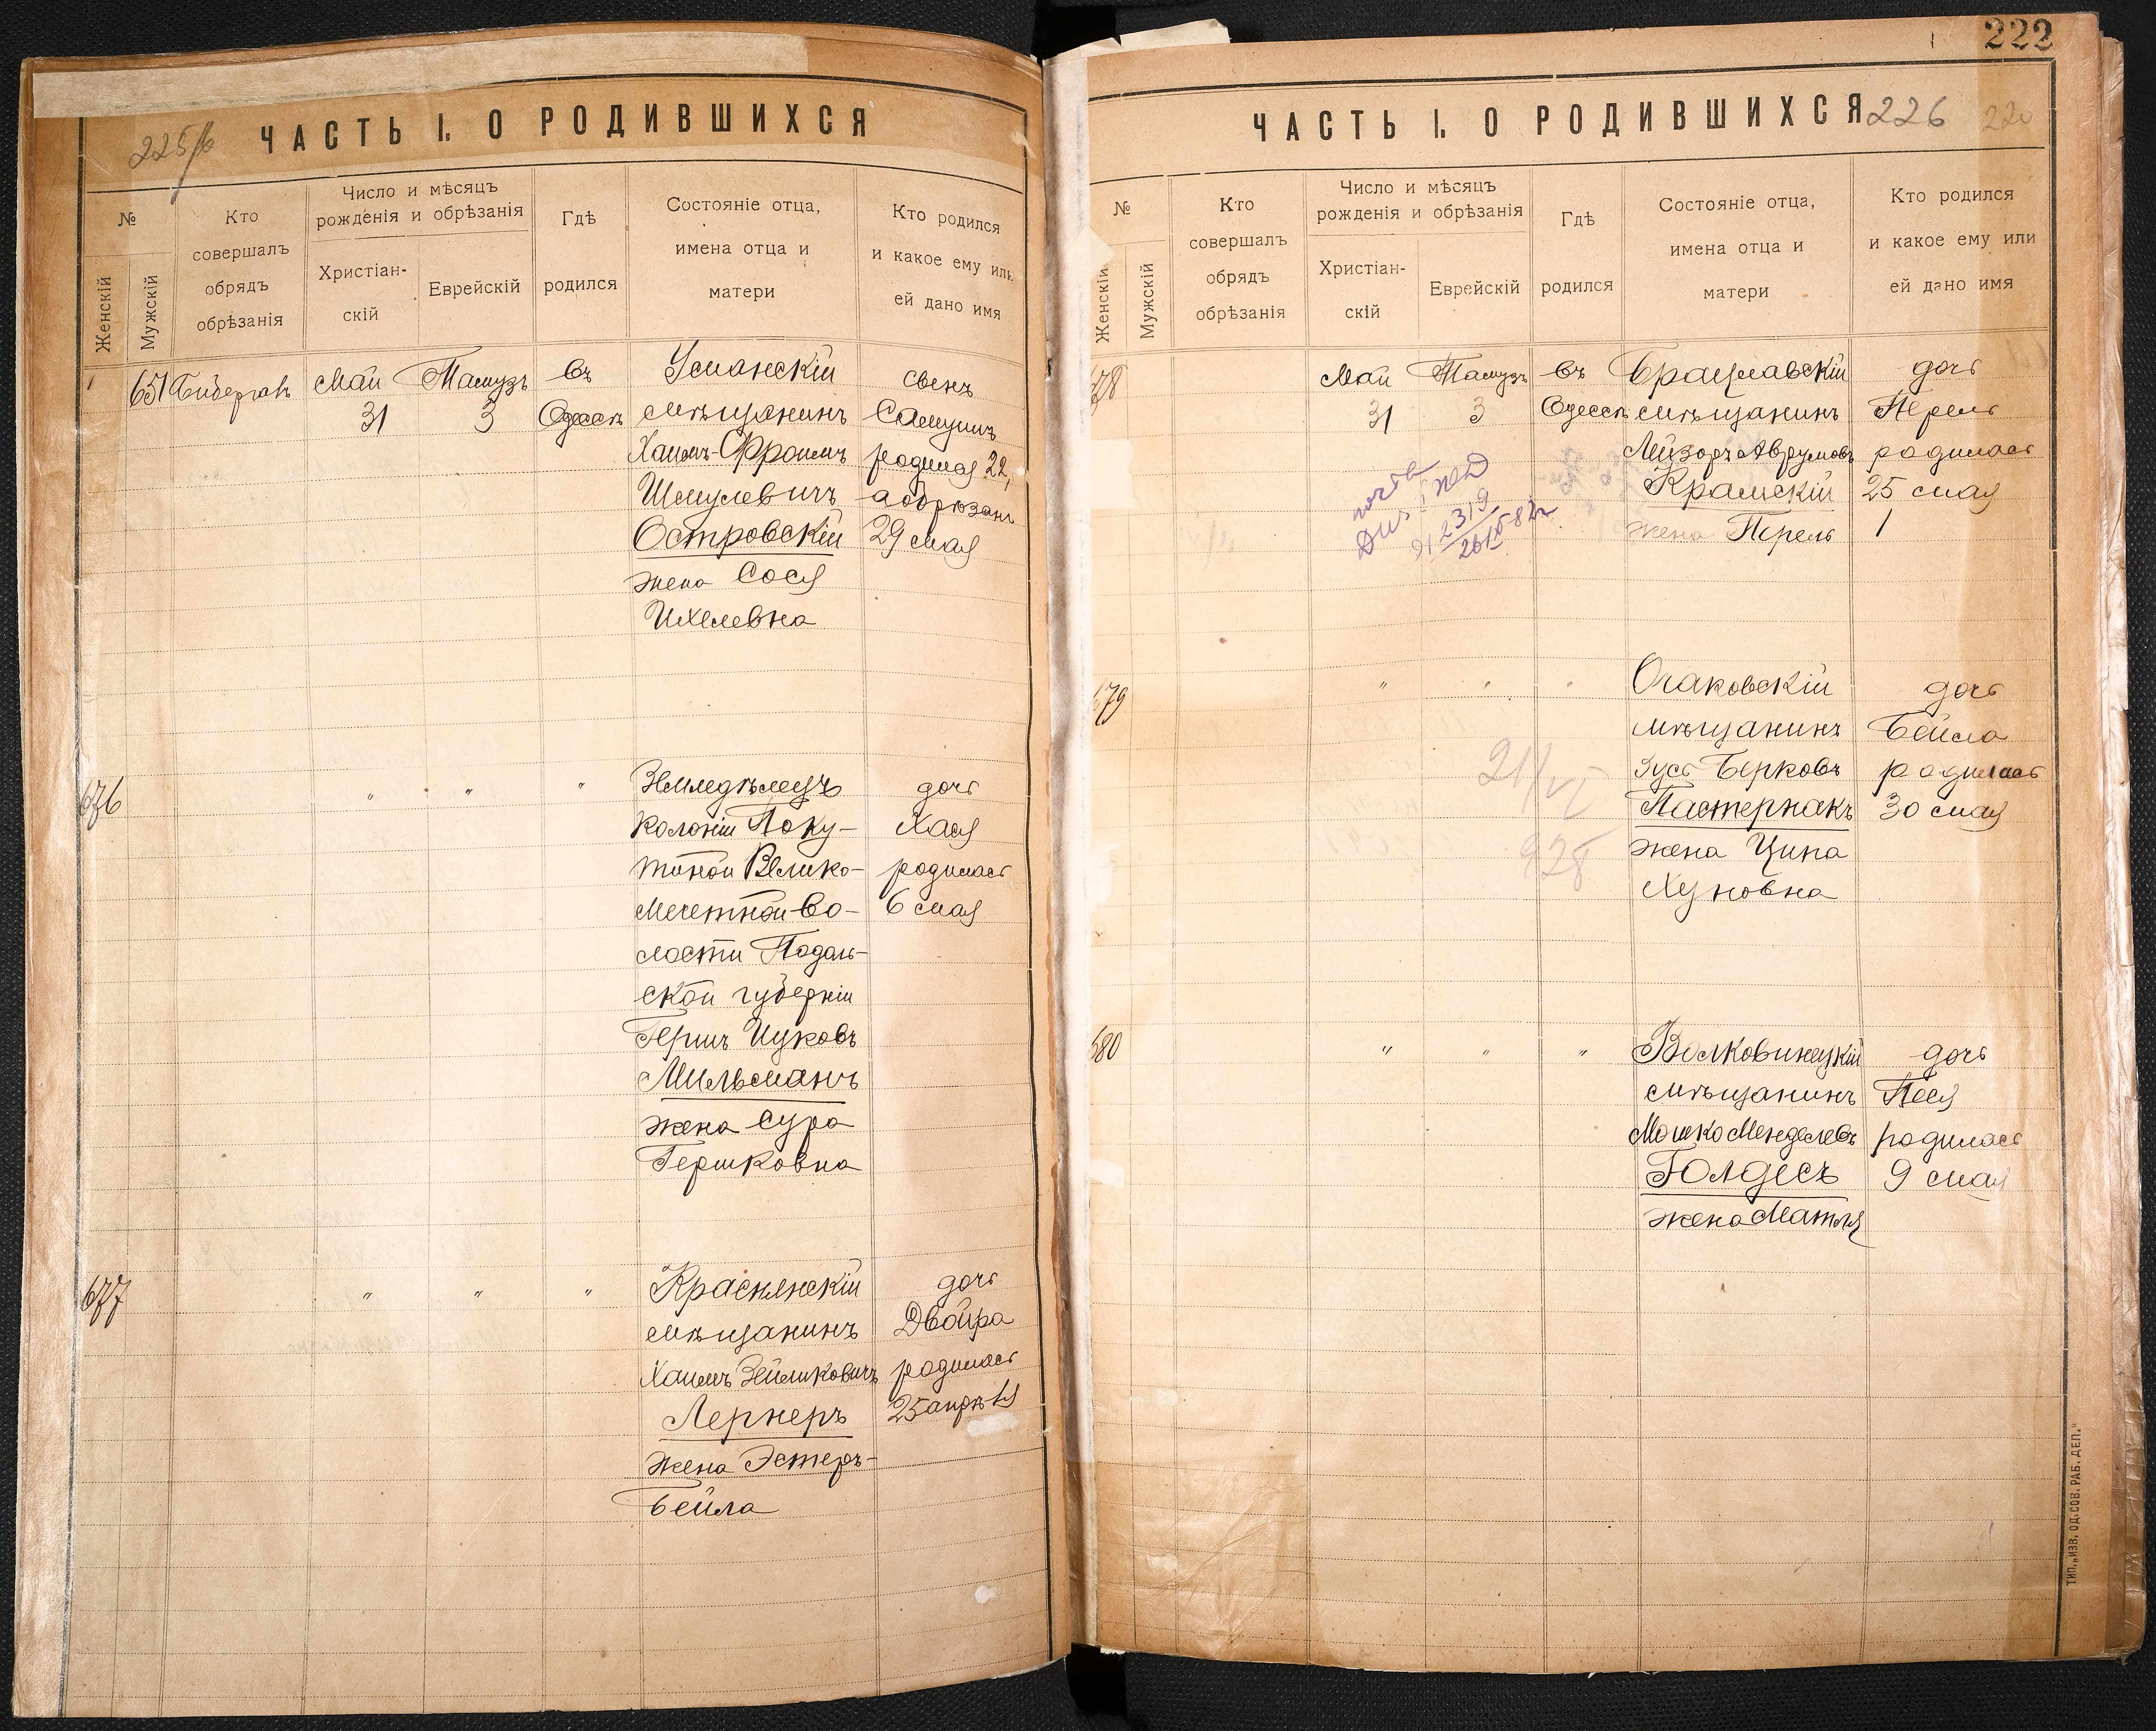 225/б
ЧАСТЬ I. О РОДИВШИХСЯ
№
Женскій
Мужскій
Кто
совершалъ
обрядъ
обрѣзанія
Число и мѣсяцъ
рожденія и обрѣзанія
Христіан-
скій
Еврейскій
Гдѣ
родился
Состояніе отца,
имена отца и
матери
Кто родился
и какое ему или
ей дано имя
651
Май
31
Тамузъ
3
въ
Одессѣ
Уманскій
мѣщанинъ
Хаимъ-Фроимъ
Шмулевичъ
Островскій
жена Сося
Ихелевна
сынъ
родился 22,
а обрѣзанъ
29 мая
676
" " "
Земледѣлецъ
колоніи Поку-
тиной Велико-
Мечетной во-
лости Подоль-
ской губерніи
Гершъ Ицковъ
Мильманъ
жена Сура
Гершковна
дочь
Хася
родилась
6 мая
677
" " "
Краснянскій
мѣщанинъ
Хаимъ Зейликовичъ
Лернеръ
жена Эстеръ-
Бейла
дочь
Двойра
родилась
25 апрѣля
222
ЧАСТЬ I. О РОДИВШИХСЯ
226 220
№
Женскій
Мужскій
Кто
совершалъ
обрядъ
обрѣзанія
Число и мѣсяцъ
рожденія и обрѣзанія
Христіан-
скій
Еврейскій
Гдѣ
родился
Состояніе отца,
имена отца и
матери
Кто родился
и какое ему или
ей дано имя
678
Май
31
Тамузъ
3
въ
Одессѣ
Брацлавскій
мѣщанинъ
Лейзоръ Аврумовъ
Крамскій
жена Перель
дочь
Перель
родилась
25 мая
679
" " "
21/VI
928
Очаковскій
мѣщанинъ
Зусь Берковъ
Пастернакъ
жена Ципа
Хуновна
дочь
Бейла
родилась
30 мая
680
" " "
Волковинецкій
мѣщанинъ
Мошко Менделевъ
Голдесъ
жена Матля
дочь
Песя
родилась
9 мая
ТИП. „ИЗВ. ОД. СОВ. РАБ. ДЕП."